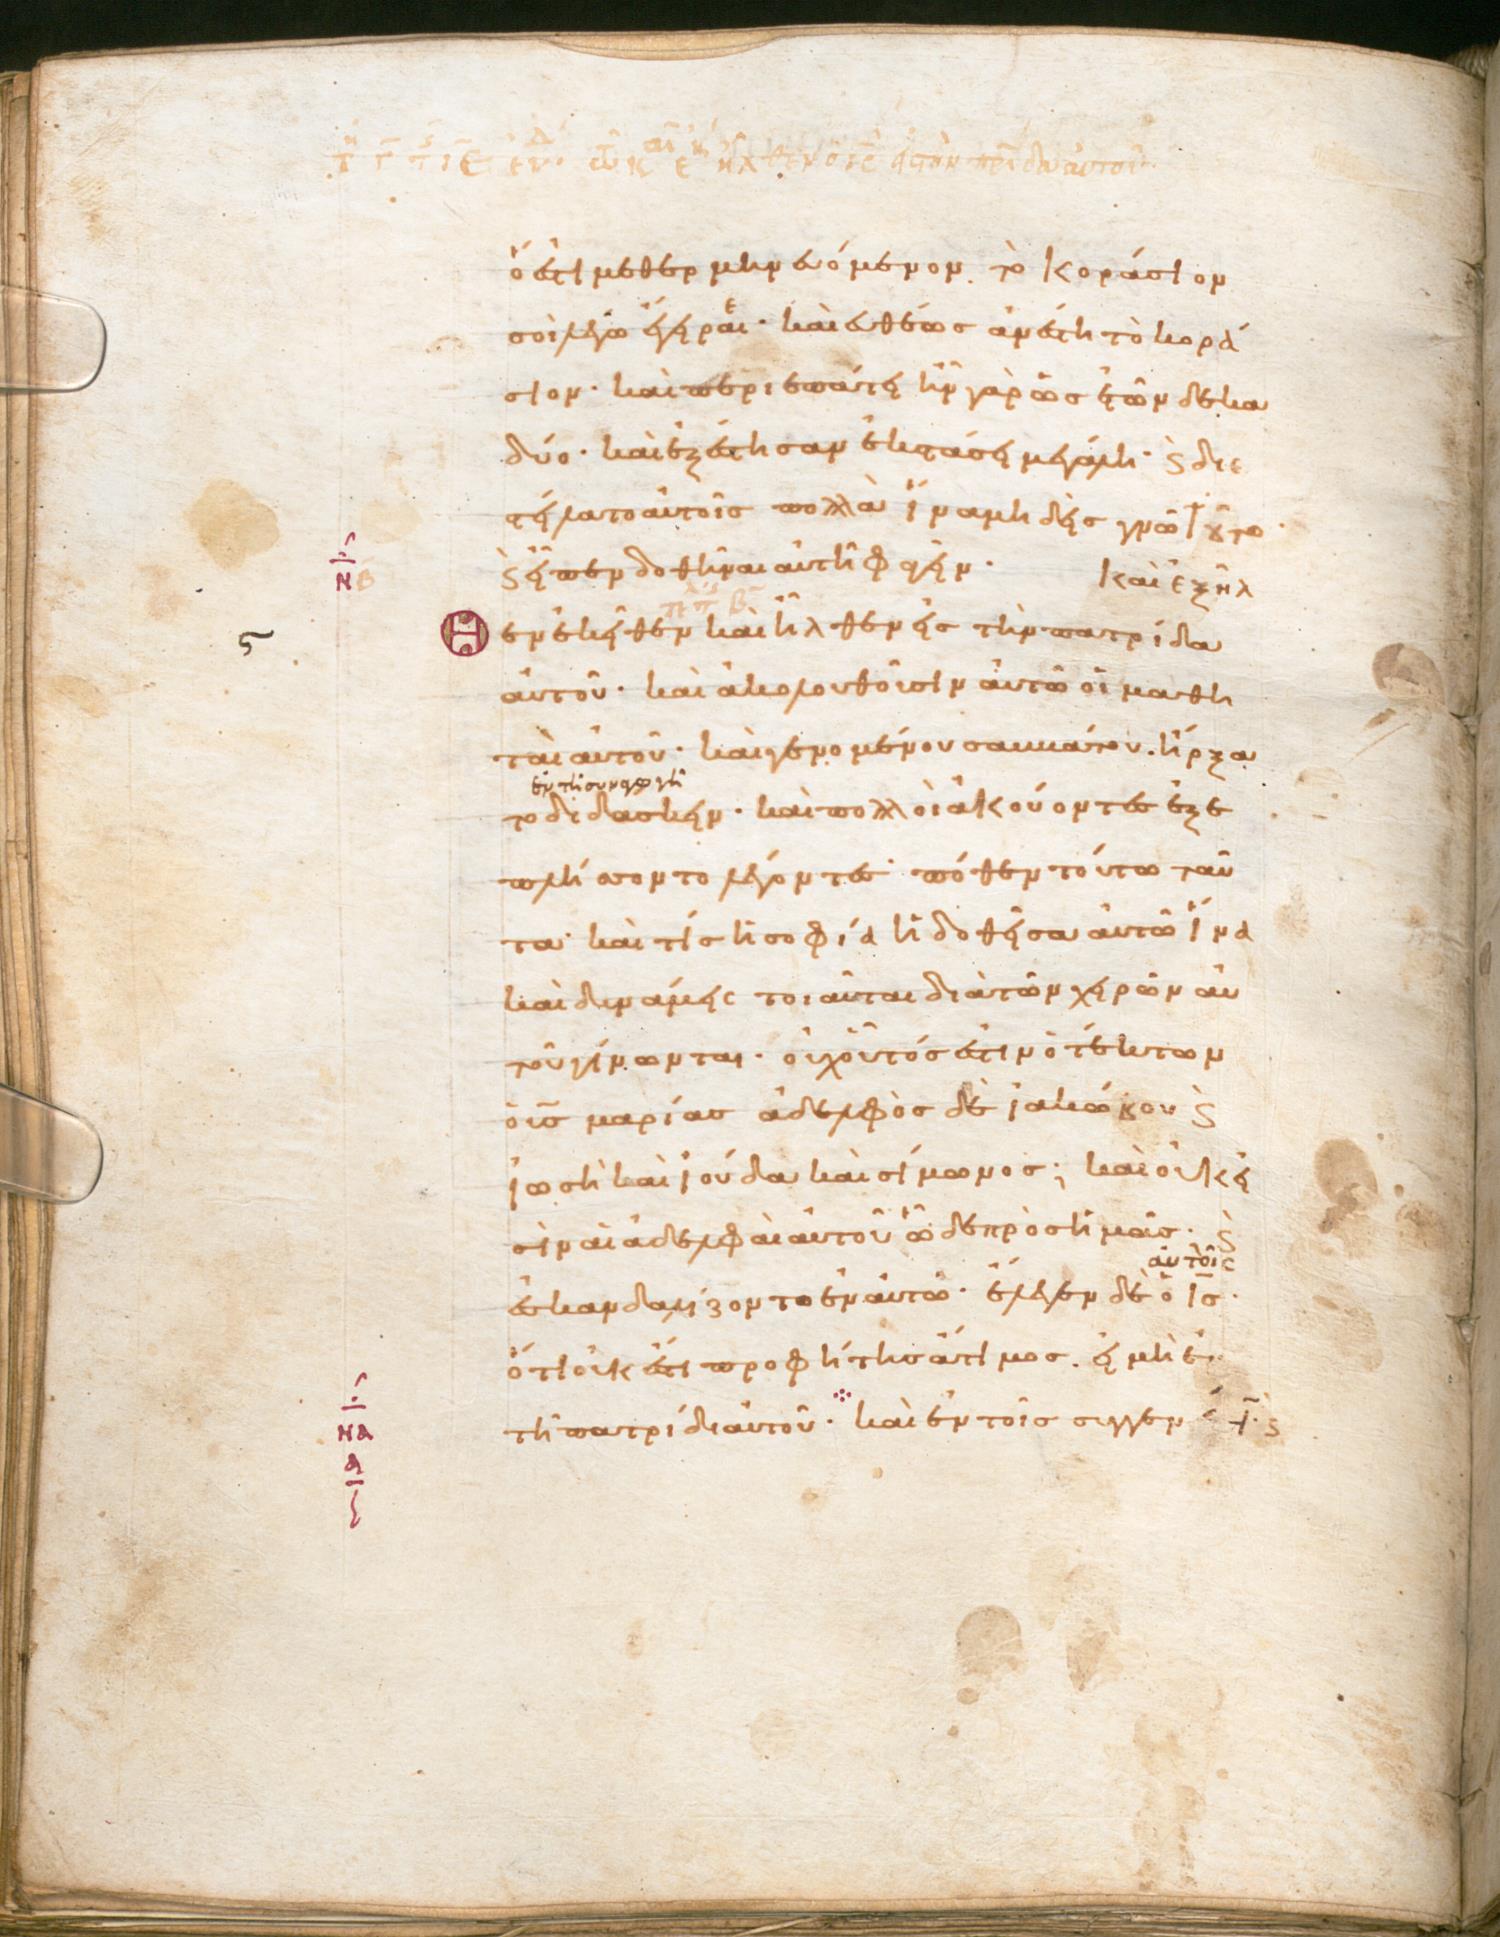 ὅ ἐστι μεθερμηνευόμενον. τὸ κοράσιον
σοὶ λέγω ἔγειραι· καὶ εὐθέως ἀνέστη τὸ κορά
σιον· καὶ περιεπάτει ἦν γὰρ ὡς ἐτῶν δεκα
δύο· καὶ ἐξέστησαν ἐκστάσει μεγάλη· ϛ̀ διε
στείλατο αὐτοῖς πολλὰ ἵνα μηδεὶς γνῶ τοῦτο·
ϛ̀ εἶπεν δοθῆναι αὐτῆ φαγεῖν· Καὶ ἐξῆλ
θεν ἐκεῖθεν καὶ ἦλθεν εἰς τὴν πατρίδα
αὐτοῦ· καὶ ἀκολουθοῦσιν αὐτῶ οἱ μαθη
ταὶ αὐτοῦ· καὶ γενομένου σαββάτου. ἤρξα
ἐν τῆ συναγωγῆ
το διδάσκειν· καὶ πολλοὶ ἀκούοντες ἐξε
πλήσσοντο λέγοντες· πόθεν τούτω ταῦ
τα· καὶ τίς ἡ σοφία ἡ δοθεῖσα αὐτῶ ἵνα
καὶ δυνάμεις τοιαῦται διὰ τῶν χειρῶν αὐ
τοῦ γίνωνται· οὐχ οὗτός ἐστιν ὁ τέκτων
ὁ υἱς μαρίας ἀδελφὸς δὲ ἰακώβου ϛ̀
ἰωσῆ καὶ ἰούδα καὶ σίμωνος; καὶ οὐκ εἰ
σὶν αἱ ἀδελφαὶ αὐτοῦ ὧδε πρὸς ἡμᾶς· ϛ̀
αὐτοῖς
ἐσκανδαλίζοντο ἐν αὐτῶ· ἔλεγεν δὲ ὁ ις·
ὅτι οὐκ ἔστι προφήτης ἄτιμος. εἰ μὴ ἐν
τῆ πατρίδι αὐτοῦ· καὶ ἐν τοῖς συγγεν